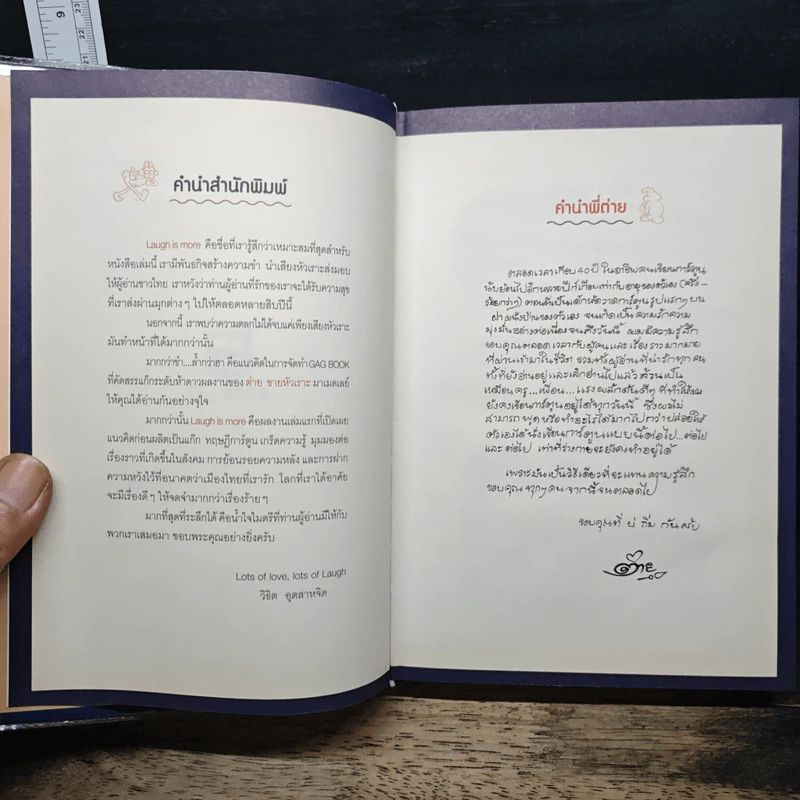 คำนำสำนักพิมพ์
Laugh is more คือชื่อที่เรารู้สึกว่าเหมาะสมที่สุดสำหรับ
หนังสือเล่มนี้ เรามีพันธกิจสร้างความขำ นำเสียงหัวเราะส่งมอบ
ให้ผู้อ่านชาวไทย เราหวังว่าท่านผู้อ่านที่รักของเราจะได้รับความสุข
ที่เราส่งผ่านมุกต่าง ๆ ไปให้ตลอดหลายสิบปีนี้
นอกจากนี้ เราพบว่าความตลกไม่ได้จบแค่เพียงเสียงหัวเราะ
มันทำหน้าที่ได้มากกว่านั้น
มากกว่าขำ...ล้ำกว่าฮา คือแนวคิดในการจัดทำ GAG BOOK
ที่คัดสรรแก๊กระดับห้าดาวผลงานของ ต่าย ขายหัวเราะ มาเมดเลย์
ให้คุณได้อ่านกันอย่างจุใจ
มากกว่านั้น Laugh is more คือผลงานเล่มแรกที่เปิดเผย
แนวคิดก่อนผลิตเป็นแก๊ก ทฤษฎีการ์ตูน เกร็ดความรู้ มุมมองต่อ
เรื่องราวที่เกิดขึ้นในสังคม การย้อนรอยความหลัง และการฝาก
ความหวังไว้ที่อนาคตว่าเมืองไทยที่เรารัก โลกที่เราได้อาศัย
จะมีเรื่องดี ๆ ให้จดจำมากกว่าเรื่องร้าย ๆ
มากที่สุดที่ระลึกได้ คือน้ำใจไมตรีที่ท่านผู้อ่านมีให้กับ
พวกเราเสมอมา ขอบพระคุณอย่างยิ่งครับ
Lots of love, lots of Laugh
วิธิต อุตสาหจิต
คำนำพี่ต่าย
ตลอดเวลาเกือบ 40 ปี ในอาชีพคนเขียนการ์ตูน
นับย้อนไปอีกหลายปีก็เกือบเท่ากับอายุของตัวเอง (ครึ่ง-
ร้อยกว่าๆ) ตอนที่เป็นเด็กหัดวาดการ์ตูนรูปแรกๆ บน
ฝาผนังบ้านของตัวเอง จนเกิดเป็นความรักความ
มุ่งมั่นอย่างต่อเนื่องจนถึงวันนี้ ผมมีความรู้สึก
ขอบคุณตลอดเวลากับผู้คนและเรื่องราวมากมาย
ที่ผ่านเข้ามาในชีวิต รวมทั้งผู้อ่านที่น่ารักทุกคน
ทั้งที่ยังอ่านอยู่และเลิกอ่านไปแล้ว ล้วนเป็น
เหมือนครู...เพื่อน...แรงผลักดันดีๆ ที่ทำให้ผม
ยังคงเขียนการ์ตูนอยู่ได้ทุกวันนี้ ซึ่งผมไม่
สามารถพูดหรือทำอะไรได้มากไปกว่าปล่อยให้
ตัวเองได้นั่งเขียนการ์ตูนแบบนี้ต่อไป...ต่อไป
และต่อไป เท่าที่ร่างกายจะยังคงทำอยู่ได้
เพราะมันเป็นวิธีเดียวที่จะแทนความรู้สึก
ขอบคุณทุกๆคน จากนี้จนตลอดไป
ขอบคุณที่ ไม่ ลืม กันครับ
ต่าย